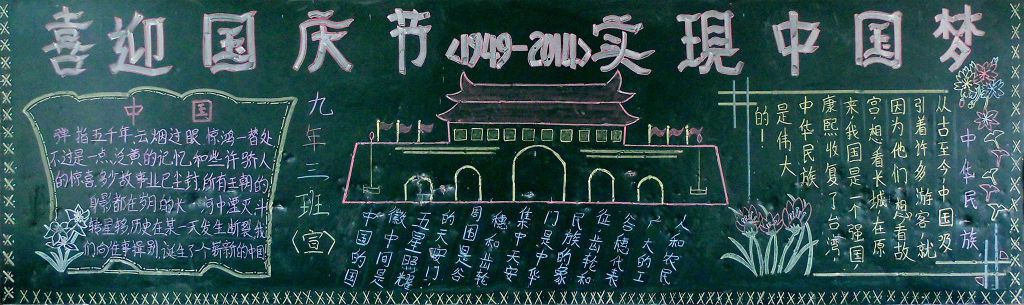 喜迎国庆节<1949-2011>实現中国梦
中国
弹指五千年,云烟过眼,惊鸿一瞥处,
不过是一点泛黄的记忆,和些许弥人
的惊喜,多少故事业已尘封,所有王朝的
身影都在岁月的长河中湮灭,斗
转星移,历史在某一天发生断裂,我
们向往事挥别,诞生了一个崭新的中国
九年三班(宣)
人和农民
广大的工
谷穗代表
位,齿轮和
民族的象
门是中华
集中天安
穗和齿轮
周围是谷
的天安门,
五星照耀
徽中间是
中国的国
中华民族
从古至今,中国吸
引着许多游客,就
因为他们想看故
宫,想看长城,在原
来我国是一个强国,
康熙收复了台湾,
中华民族
是伟大
的!